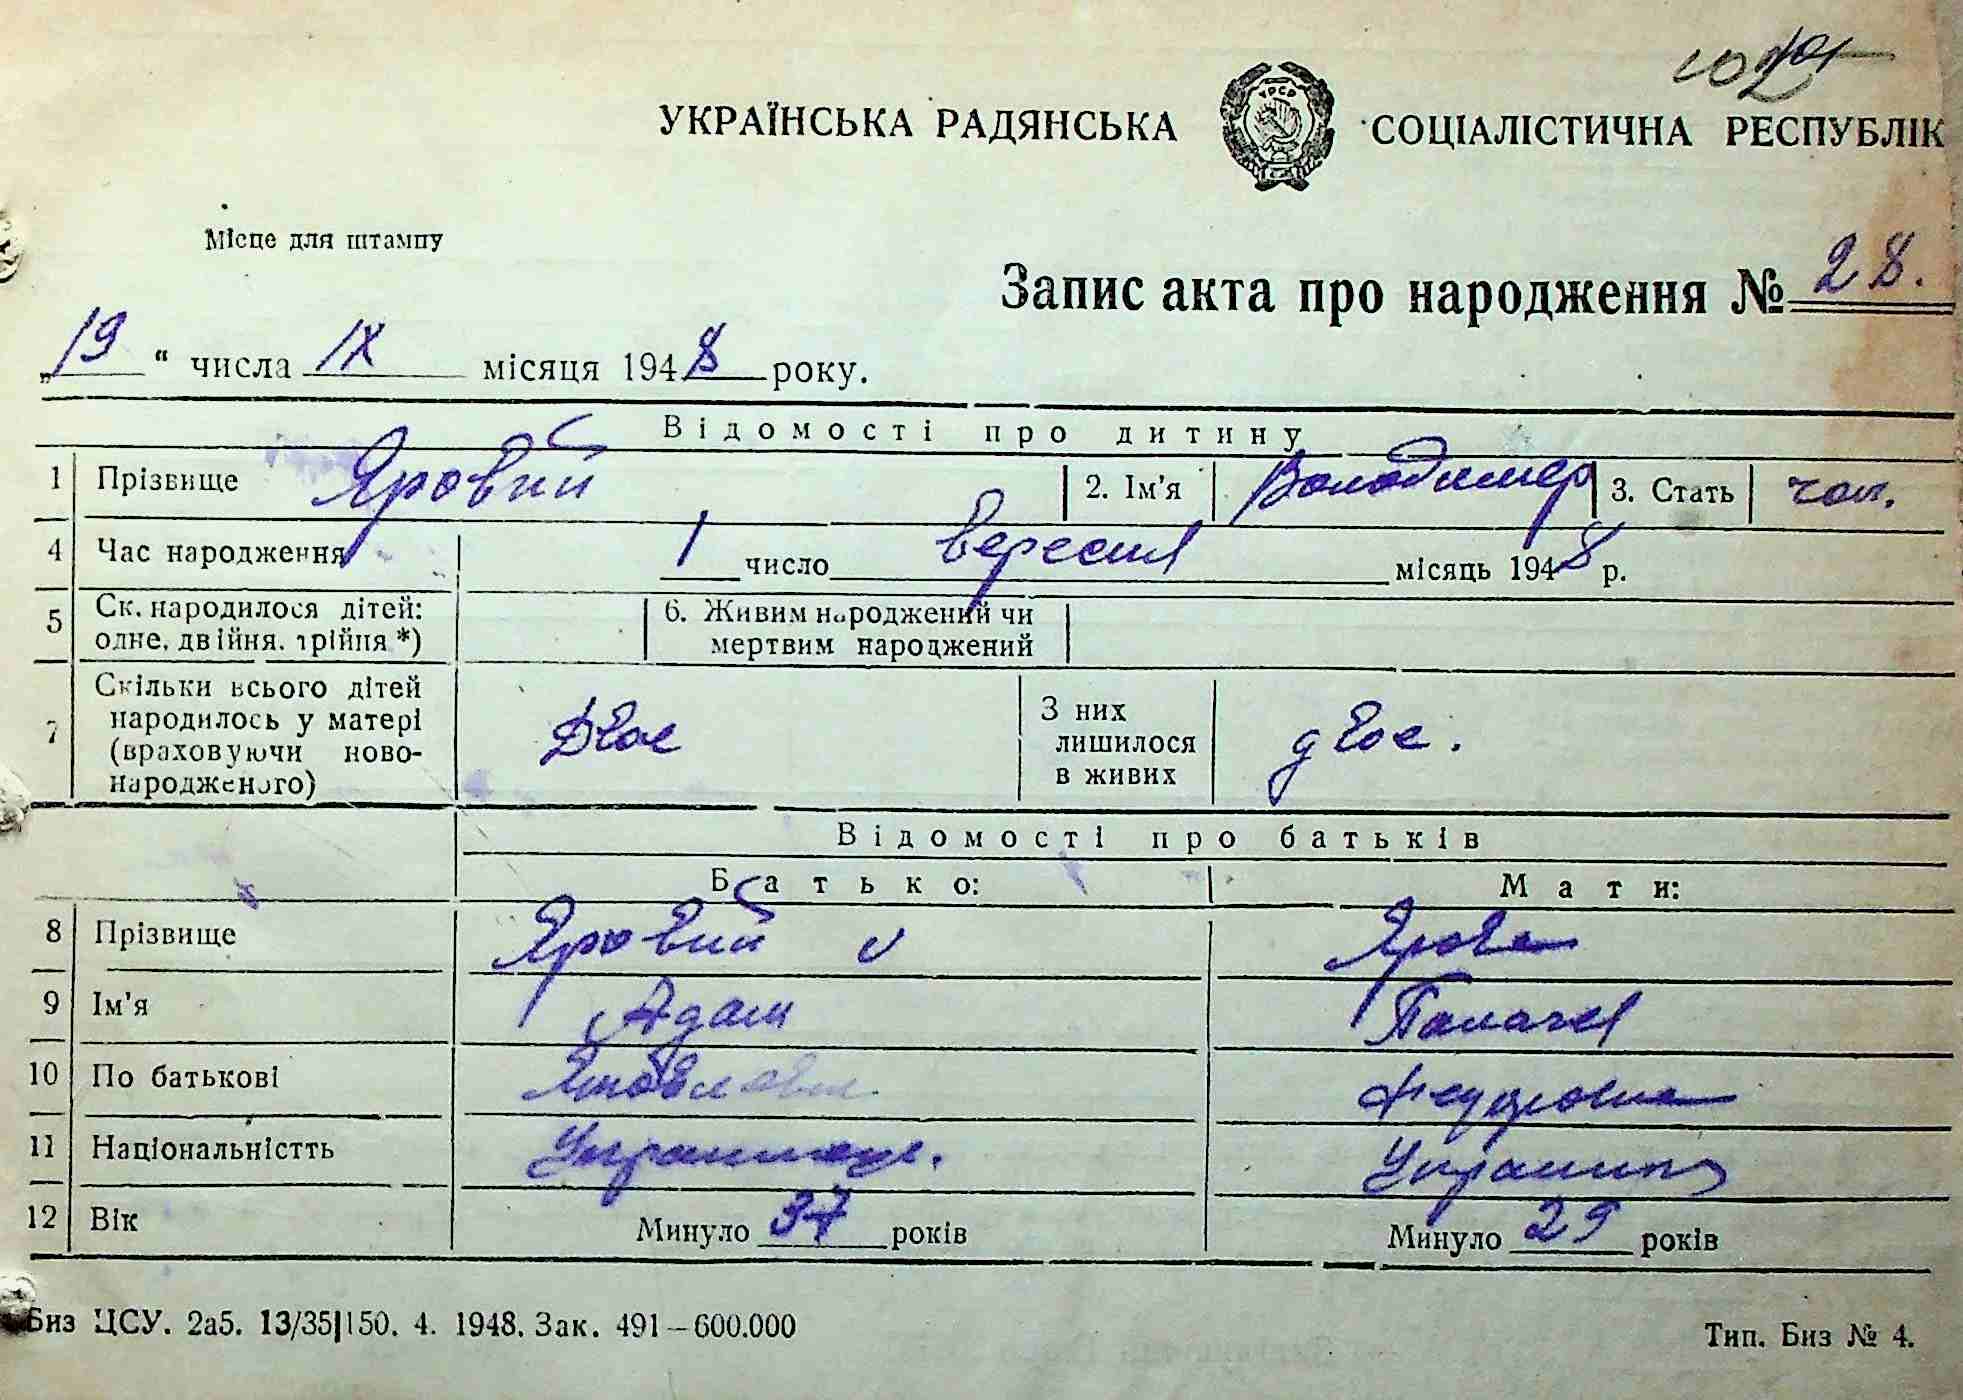 УКРАЇНСЬКА РАДЯНСЬКА СОЦІАЛІСТИЧНА РЕСПУБЛІК
УРСР
Місце для штампу
Запис акта про народження № 28.
„19“ числа IX місяця 1948 року.
Відомості про дитину
1 Прізвище Яровий 2. Ім'я Володимер 3. Стать чол.
4 Час народження 1 число вересня місяць 1948 р.
5 Ск. народилося дітей: одне, двійня, трійня *) 6. Живим народжений чи мертвим народжений
7 Скільки всього дітей народилось у матері (враховуючи новонародженого) Двоє З них лишилося в живих двоє.
Відомості про батьків
Батько: Мати:
8 Прізвище Яровий Ярова
9 Ім'я Адам Палажка
10 По батькові Яковлевич Федоровна
11 Національністть Украинец. Украинка
12 Вік Минуло 37 років Минуло 29 років
Биз ЦСУ. 2а5. 13/35|150. 4. 1948. Зак. 491—600.000
Тип. Биз № 4.